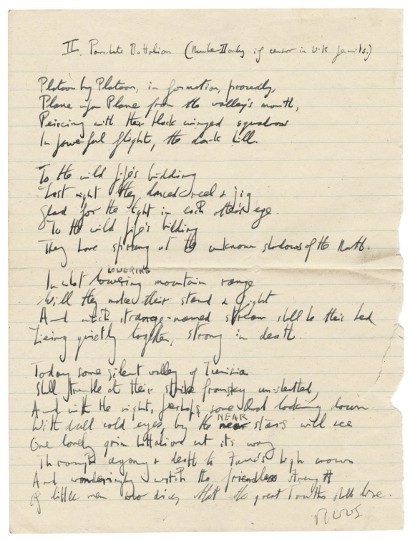 II. Parachute Battalion (Number II only if censor in U.K. permits.)
Platoon by Platoon, in formation, proudly,
Plane upon Plane from the valley's mouth,
Piercing with their black winged squadrons
In powerful flight, the dark hill.
To the wild fife's bidding
Last night they danced reel & jig
Glad for the light in each other's eye
To the wild fife's bidding
They have sprung at the unknown shadows of the North.
LOWERING
In what mountain range
Will they make their stand & fight
And which strange-named stream shall be their bed
Living quietly together, strong in death
Today some silent valley of Tunisia
Shall tremble at their strike from sky
And with the night, perhaps some God looking down
NEAR
With dull cold eyes, by the stars will see
One lonely grim battalion cut its way
Through agony & death to fame's high crown
And wonderingly watch the friendless strength
Of little men who die that the great Truths shall live.